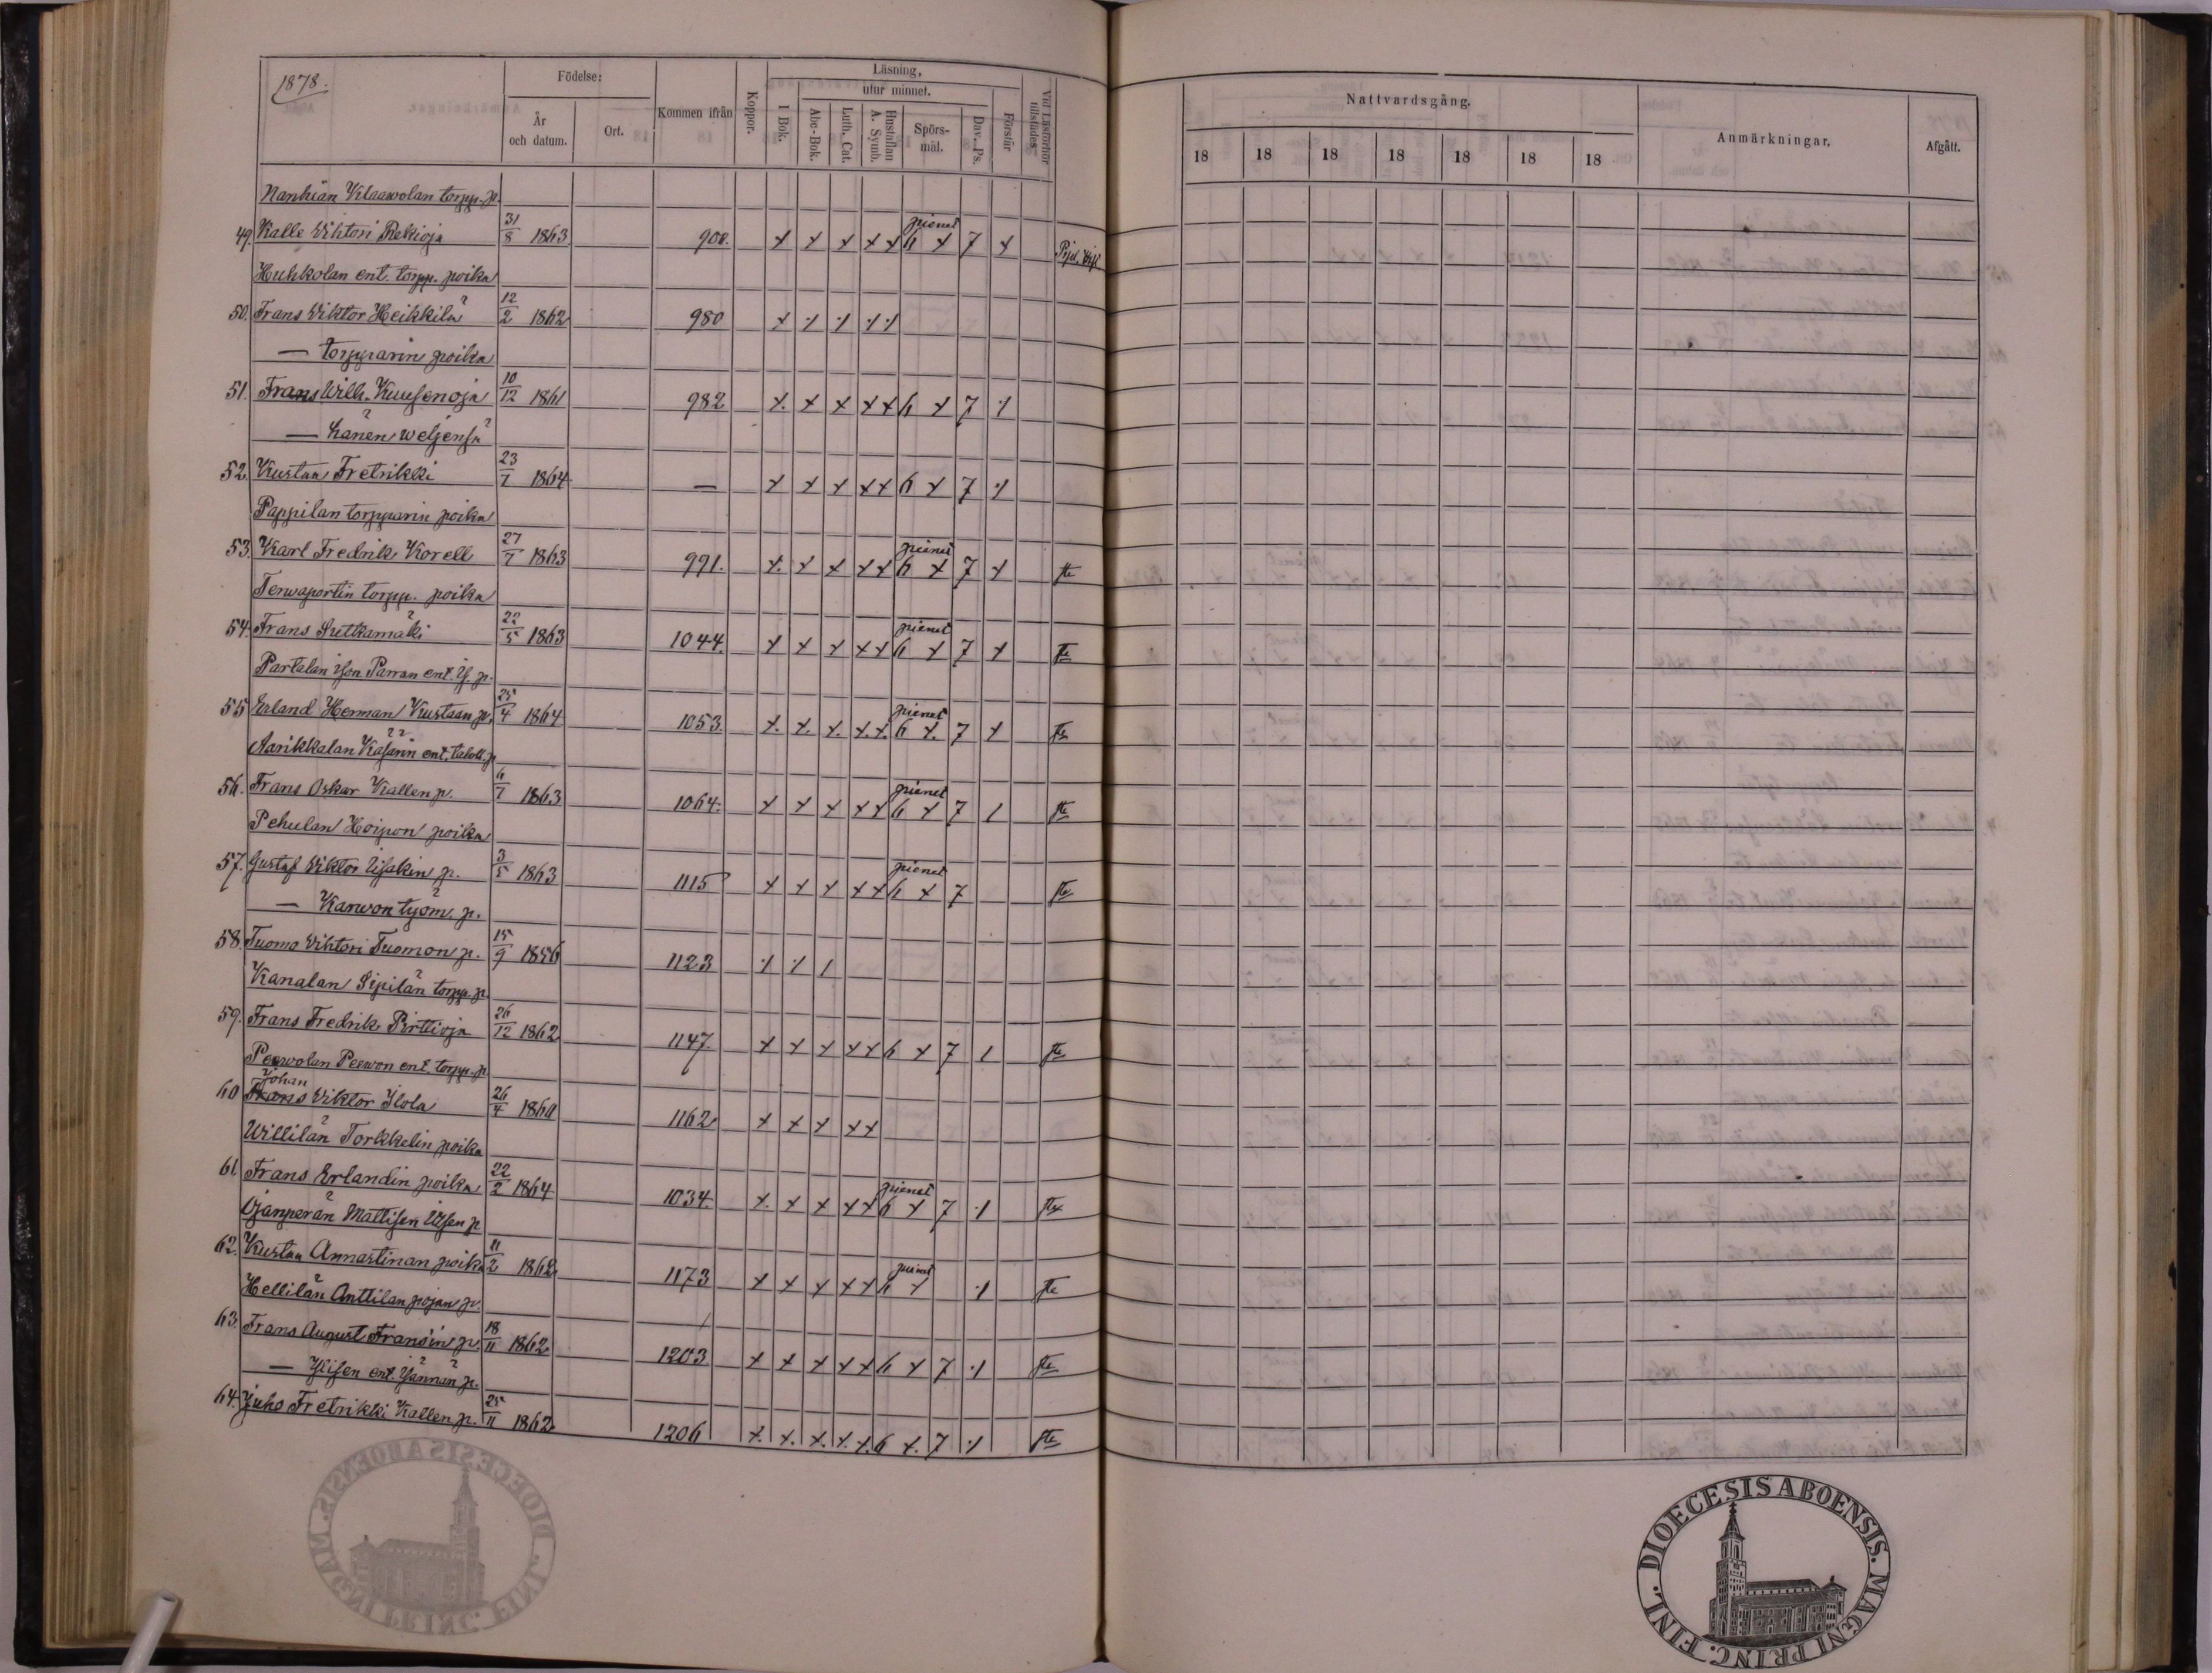 1878.
Födelse:
År och datum.
Ort.
Kommen ifrån
Koppor.
Läsning,
utur minnet.
I Bok.
Abc-Bok.
Luth. Cat.
Hustaflan A. Symb.
Spörs-mål.
Dav. Ps.
Förstår
Vid Läsförhör tillstädes.
Nattvardsgång.
18 18 18 18 18 18 18
Anmärkningar.
Afgått.
torpp. p.
49. Kalle Vihtori Rekioja 31/8 1863 908. x x x x x pienet 6 x 7 x
Huhkolan ent. torpp. poika
50. Frans Viktor Heikkilä 12/2 1862 980
— torpparin poika
51. Frans Wilh. Kuusenoja 10/12 1861 982 x x x x x 6 x 7
— hänen weljensä
52. Kustaa Fretrikki 23/7 1864 — x x x x x 6 x 7
Pappilan torpparin poika
53. Karl Fredrik Korell 27/7 1863 991. x x x x x pienet 6 x 7 x
Terwaportin torpp. poika
54. Frans Sutkamäki 22/5 1863 1044. x x x x x pienet 6 x 7 x
Partalan ison Parran ent. is. p.
55 Erland Herman Kustaan p. 25/4 1864 1053 x x x x x pienet 6 x 7 x
Aarikkalan
56. Frans Oskar Kallen p. 6/7 1863 1064. x x x x x pienet 6 x 7 1
Pehulan Hoipon poika
57. Gustaf Viktor Iisakin p. 3/5 1863 1115 x x x x x pienet 6 x 7
— Karwon työm. p.
58. Tuomo Vihtori Tuomon p. 15/9 1856 1123
Kanalan Sipilän torpp. p.
59. Frans Fredrik Pirttioja 26/12 1862 1147. x x x x x 6 x 7 1
Peewon ent. torpp. p
Johan
60 Frans Viktor Ilola 26/4 1860 1162 x x x x x
Willilän Torkkelin poika
61. Frans Erlandin poika 22/2 1864 1034. x x x x x pienet 6 x 7
Ojanperän Mattisen p
62. Kustaa Annastinan poika 11/2 1862 1173 x x x x x pienet 6 x
Hellilän Anttilan pojan p.
63. Frans August Fransin p. 18/11 1862 1203 x x x x x 6 x 7
— ent. Isännän p.
64. Juho Fretrikki Kallen p. 25/11 1862 1206 x x x x x 6 x 7
DIOECESIS ABOENSIS. MAGNI PRINC. FINL.